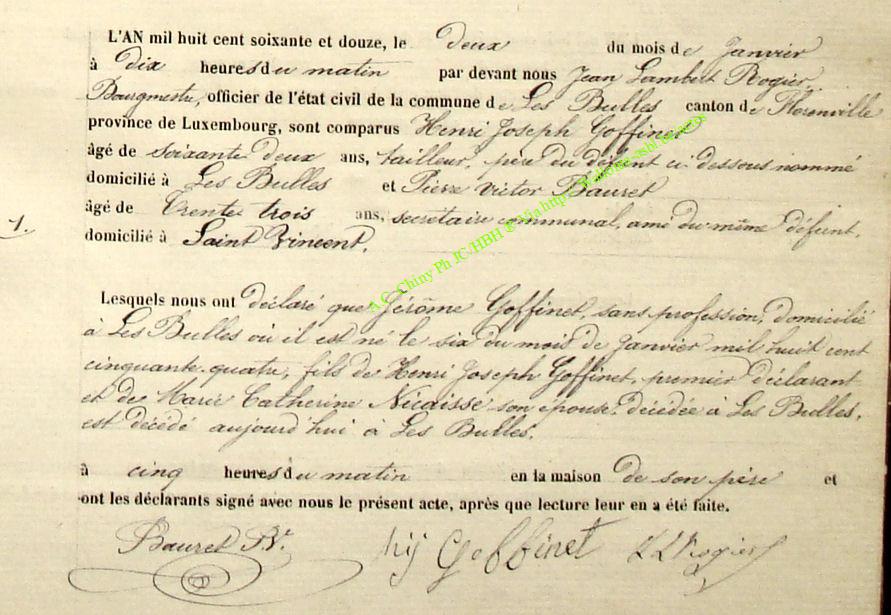 L'AN mil huit cent soixante et douze, le deux du mois de Janvier
à dix heures du matin par devant nous Jean Lambert Rogier,
Bourgmestre, officier de l'état civil de la commune de Les Bulles canton de Florenville
province de Luxembourg, sont comparus Henri Joseph Goffinet
âgé de soixante deux ans, tailleur, père du défunt ci dessous nommé
domicilié à Les Bulles et Pierre Victor Bauret
âgé de trente trois ans, secrétaire communal, ami du même défunt,
1.
domicilié à Saint Vincent.
Lesquels nous ont déclaré que Jérôme Goffinet, sans profession, domicilié
à Les Bulles où il est né le six du mois de Janvier mil huit cent
cinquante quatre, fils de Henri Joseph Goffinet, premier déclarant
et de Marie Catherine Nicaisse son épouse, décédée à Les Bulles,
est décédé aujourd'hui à Les Bulles,
à cinq heures du matin en la maison de son père et
ont les déclarants signé avec nous le présent acte, après que lecture leur en a été faite.
Bauret Pr. hij Goffinet J L Rogier
A.C. Chiny Ph JC/HBH @ Via